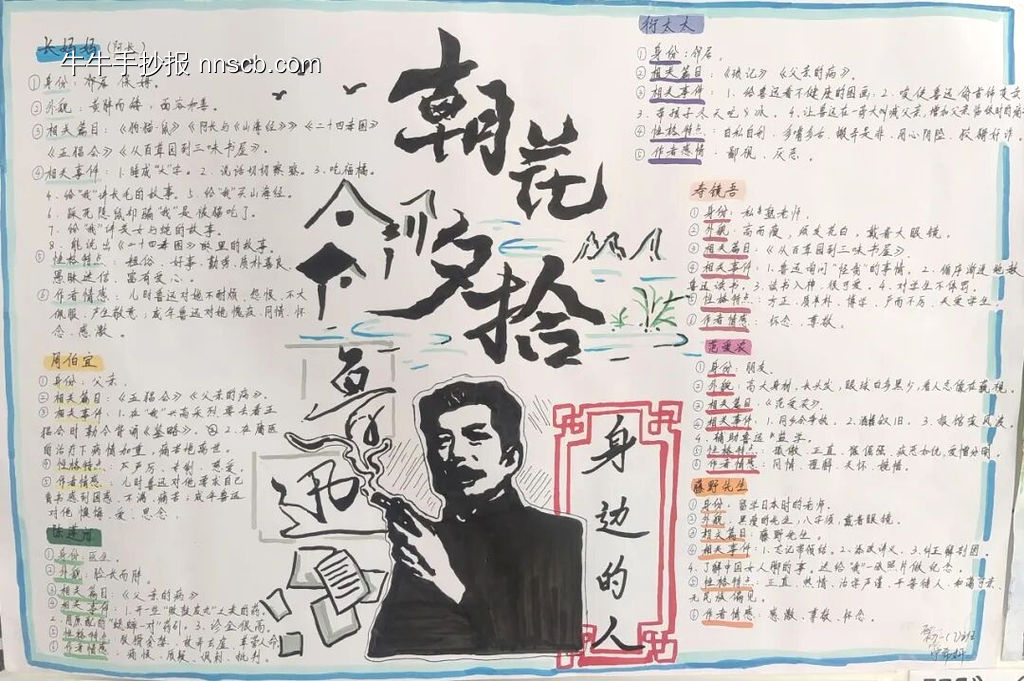 长妈妈（阿长）
牛牛手抄报 nnscb.com
①身份：保姆。
②外貌：黄胖而矮；面容和善。
③相关篇目：《狗·猫·鼠》《阿长与《山海经》》《二十四孝图》
《五猖会》《从百草园到三味书屋》。
④相关事件：1.睡成“大”字。2.说话切切察察。3.吃福橘。
4.给“我”讲长毛的故事。5.给“我”买山海经。
6.踩死隐鼠却骗“我”是被猫吃了。
7.给“我”讲美女与蛇的故事。
8.能说出《二十四孝图》故里的故事。
⑤性格特点：粗俗、好事、勤劳、质朴善良、
愚昧迷信、富有爱心。
⑥作者情感：儿时鲁迅对她不耐烦、怨恨、不大
佩服、产生敬意；成年鲁迅对她愧在、同情、怀
念、感激。
周伯宜
①身份：父亲。
②相关篇目：《五猖会》《父亲的病》。
③相关事件：1.在“我”兴高采烈要去看五
猖会时勒令背诵《鉴略》。2.在庸医
治疗下病情加重，痛苦地离世。
④性格特点：严厉、专制、慈爱。
⑤作者情感：儿时鲁迅对他要求自己
背书感到困惑、不满、痛苦；成年鲁迅
对他懊悔、爱、思念。
陈莲河
①身份：医生。
②外貌：脸长而胖。
③相关篇目：《父亲的病》
④相关事件：1.开一些“败鼓皮丸”之类的药。
2.用原配的“蟋蟀一对”药引。3.诊金很高。
⑤性格特点：
⑥作者情感：痛恨、质疑、讽刺、批判。
朝花夕拾
鲁迅
身边的人
衍太太
①身份：邻居。
②相关篇目：《琐记》《父亲的病》。
③相关事件：1.给鲁迅看不健康的图画；2.唆使鲁迅偷首饰变卖
④性格特点：自私自利、多嘴多舌、搬弄是非、用心阴险、狡猾奸诈
⑤作者感情：鄙视、厌恶。
寿镜吾
①身份：私塾老师。
②外貌：高而瘦，须发花白，戴着大眼镜。
③相关篇目：《从百草园到三味书屋》
④相关事件：1.鲁迅询问“怪哉”的事情。2.循序渐进地教
鲁迅读书。3.读书入神，很可爱。4.对学生不体罚。
⑤性格特点：方正、质朴、博学、严而不厉、关爱学生
⑥作者情感：怀念、尊敬。
范爱农
①身份：朋友。
②外貌：高大身材，长头发，眼球白多黑少，看人总像在藐视。
③相关篇目：《范爱农》。
④相关事件：1.同乡会争执。2.酒楼叙旧。3.报馆案风波
4.辅助鲁迅
⑤性格特点：正直、倔强、疾恶如仇、爱憎分明
⑥作者情感：同情、理解、关怀、惋惜。
藤野先生
①身份：留学日本时的老师。
②外貌：黑瘦的先生，八字须，戴着眼镜。
③相关篇目：藤野先生。
④相关事件：1.忘记带领结。2.添改讲义。3.纠正解剖图。
4.了解中国女人脚的事。送给“我”一张照片做纪念。
⑤性格特点：正直、热情、治学严谨、平等待人、
无民族偏见。
⑥作者情感：感激、尊敬、怀念。